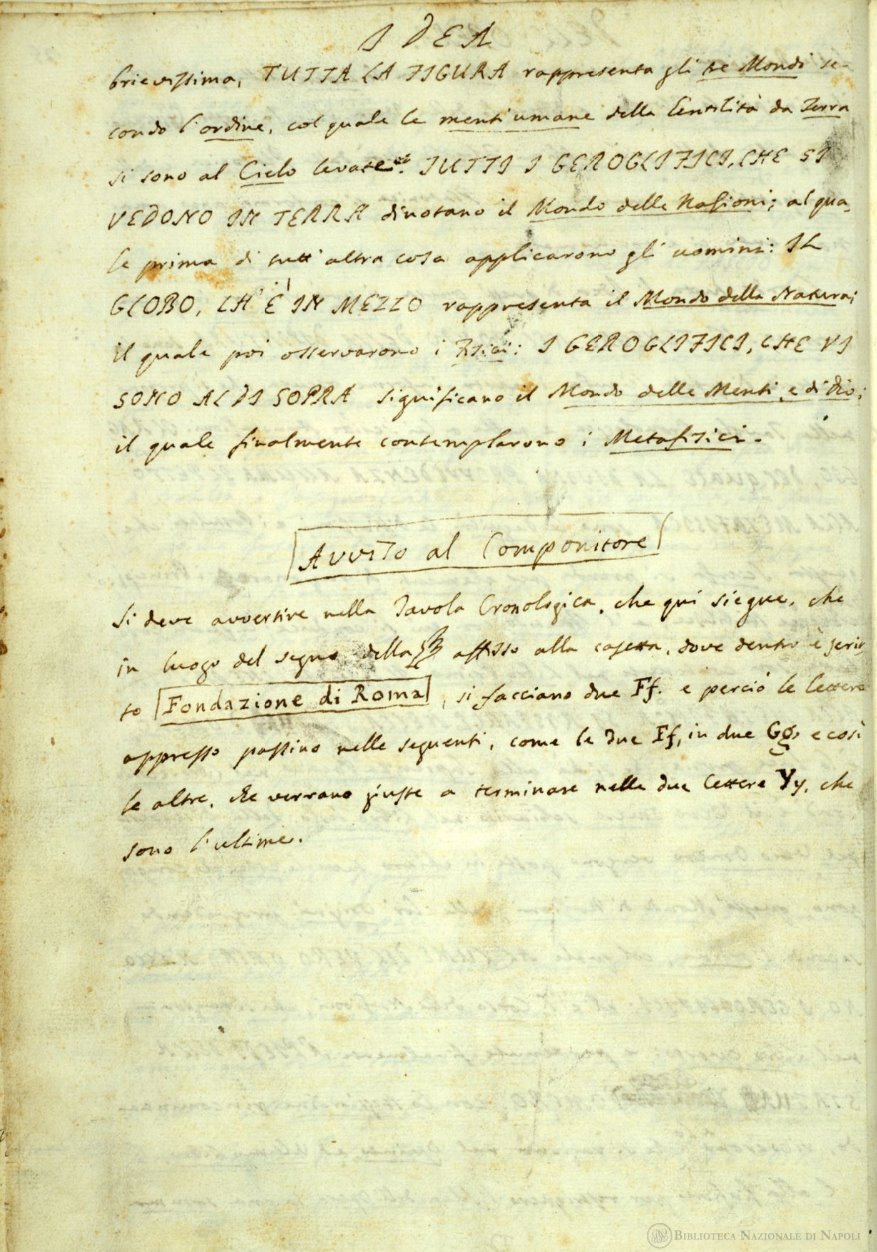 IDEA
brievissima, TUTTA LA FIGURA rappresenta gli tre Mondi se-
condo l'ordine, col quale le menti umane della Gentilità da Terra
si sono al Cielo levate. TUTTI I GEROGLIFICI, CHE SI
VEDONO IN TERRA dinotano il Mondo delle Nazioni; al qua-
le prima di tutt'altra cosa applicarono gli uomini: IL
GLOBO, CH'È IN MEZZO rappresenta il Mondo della Natura;
il quale poi osservarono i Fisici: I GEROGLIFICI, CHE VI
SONO AL DI SOPRA significano il Mondo delle Menti, e di Dio;
il quale finalmente contemplarono i Metafisici.
Avviso al Componitore
Si deve avvertire nella Tavola Cronologica, che qui siegue, che
in luogo del segno della affisso alla casetta, dove dentro è scrit-
to Fondazione di Roma, si facciano due Ff. e perciò le lettere
appresso passino nelle seguenti, come le due Ff, in due Gg, e così
le altre, che verrano giuste a terminare nelle due lettere Yy, che
sono l'ultime.
BIBLIOTECA NAZIONALE DI NAPOLI